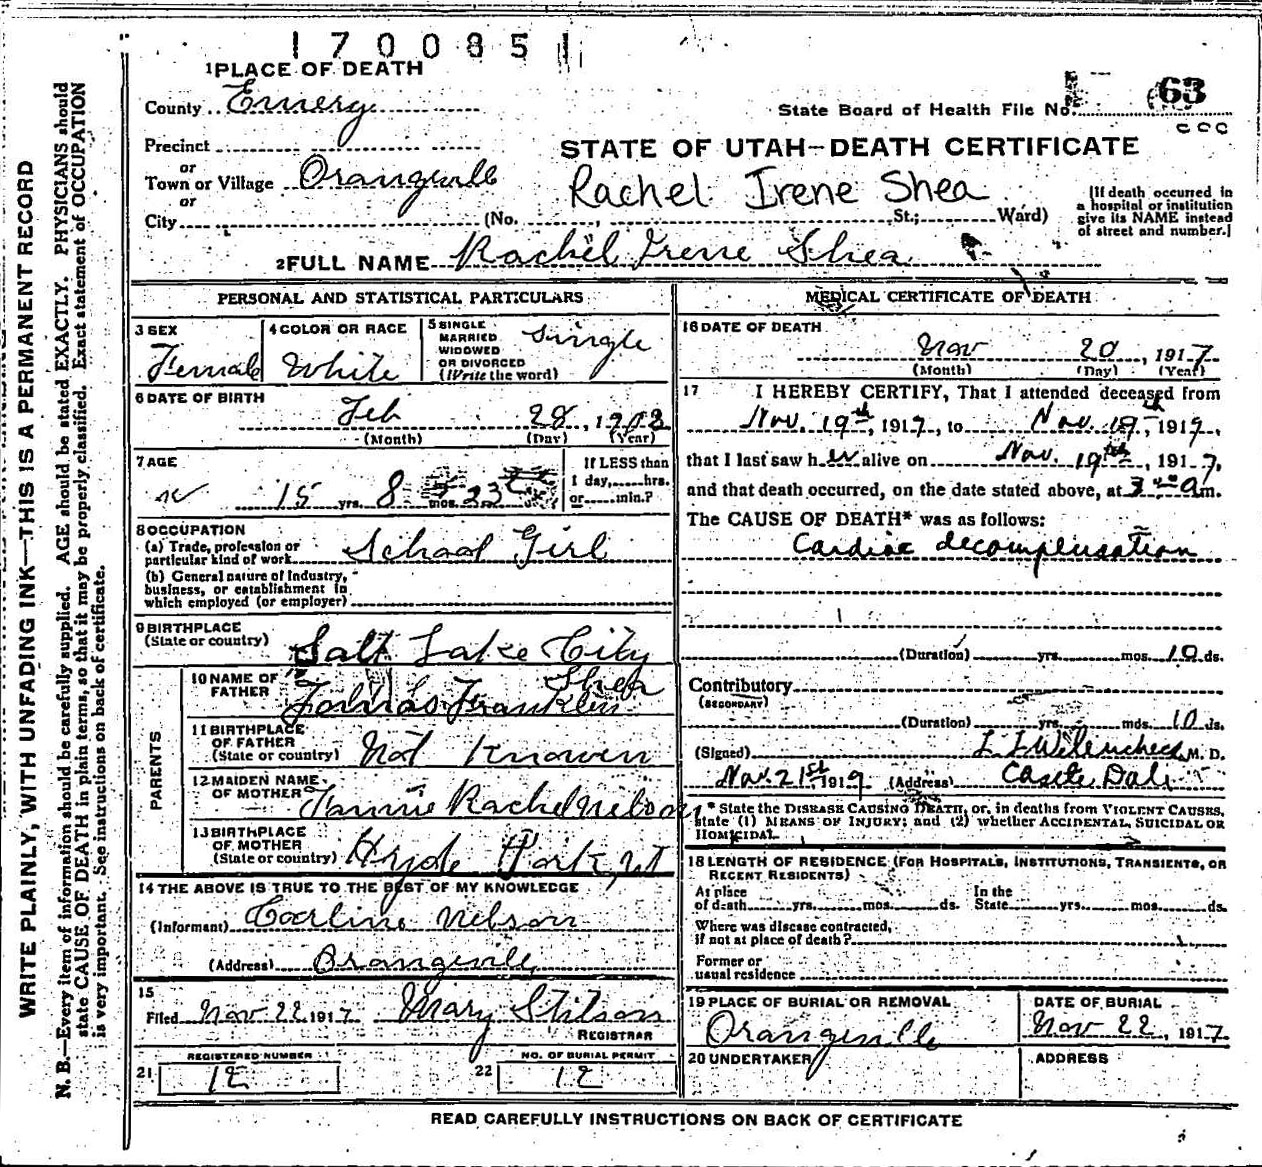 1700851
1 PLACE OF DEATH
County Emery
State Board of Health File No. 63
Precinct
or
Town or Village Orangeville
or
City (No. St.; Ward)
STATE OF UTAH—DEATH CERTIFICATE
Rachel Irene Shea
[If death occurred in
a hospital or institution
give its NAME instead
of street and number.]
2 FULL NAME Rachel Irene Shea
PERSONAL AND STATISTICAL PARTICULARS
3 SEX
Female
4 COLOR OR RACE
White
5 SINGLE
MARRIED
WIDOWED
OR DIVORCED
(Write the word)
Single
6 DATE OF BIRTH
Feb 28, 1902
(Month) (Day) (Year)
7 AGE
15 yrs. 8 mos. 23
If LESS than
1 day, hrs.
or min.?
8 OCCUPATION
(a) Trade, profession or
particular kind of work School Girl
(b) General nature of Industry,
business, or establishment in
which employed (or employer)
9 BIRTHPLACE
(State or country) Salt Lake City
PARENTS
10 NAME OF
FATHER
Shea
Franklin
11 BIRTHPLACE
OF FATHER
(State or country) Not Known
12 MAIDEN NAME
OF MOTHER Fannie Rachel Nelson
13 BIRTHPLACE
OF MOTHER
(State or country) Hyde Park, Ut
14 THE ABOVE IS TRUE TO THE BEST OF MY KNOWLEDGE
(Informant) Nelson
(Address) Orangeville
15
Filed Nov 22 1917 Mary Stilson
REGISTRAR
REGISTERED NUMBER
21 12
NO. OF BURIAL PERMIT
22 12
MEDICAL CERTIFICATE OF DEATH
16 DATE OF DEATH
Nov 20, 1917
(Month) (Day) (Year)
17 I HEREBY CERTIFY, That I attended deceased from
Nov. 19th, 1917, to Nov. 19th 1917,
that I last saw her alive on Nov. 19th, 1917,
and that death occurred, on the date stated above, at 3 a m.
The CAUSE OF DEATH* was as follows:
Cardiac decompensation
(Duration) yrs. mos. 10 ds.
Contributory
(SECONDARY)
(Duration) yrs. mos. 10 ds.
(Signed) M. D.
Nov. 21st 1917 (Address) Castle Dale
* State the DISEASE CAUSING DEATH, or, in deaths from VIOLENT CAUSES,
state (1) MEANS OF INJURY; and (2) whether ACCIDENTAL, SUICIDAL OR
HOMICIDAL.
18 LENGTH OF RESIDENCE (FOR HOSPITALS, INSTITUTIONS, TRANSIENTS, OR
RECENT RESIDENTS)
At place
of death yrs. mos. ds.
In the
State yrs. mos. ds.
Where was disease contracted,
if not at place of death?
Former or
usual residence
19 PLACE OF BURIAL OR REMOVAL
Orangeville
DATE OF BURIAL
Nov 22, 1917
20 UNDERTAKER
ADDRESS
READ CAREFULLY INSTRUCTIONS ON BACK OF CERTIFICATE
WRITE PLAINLY, WITH UNFADING INK—THIS IS A PERMANENT RECORD
N. B.—Every item of information should be carefully supplied. AGE should be stated EXACTLY. PHYSICIANS should
state CAUSE OF DEATH in plain terms, so that it may be properly classified. Exact statement of OCCUPATION
is very important. See instructions on back of certificate.